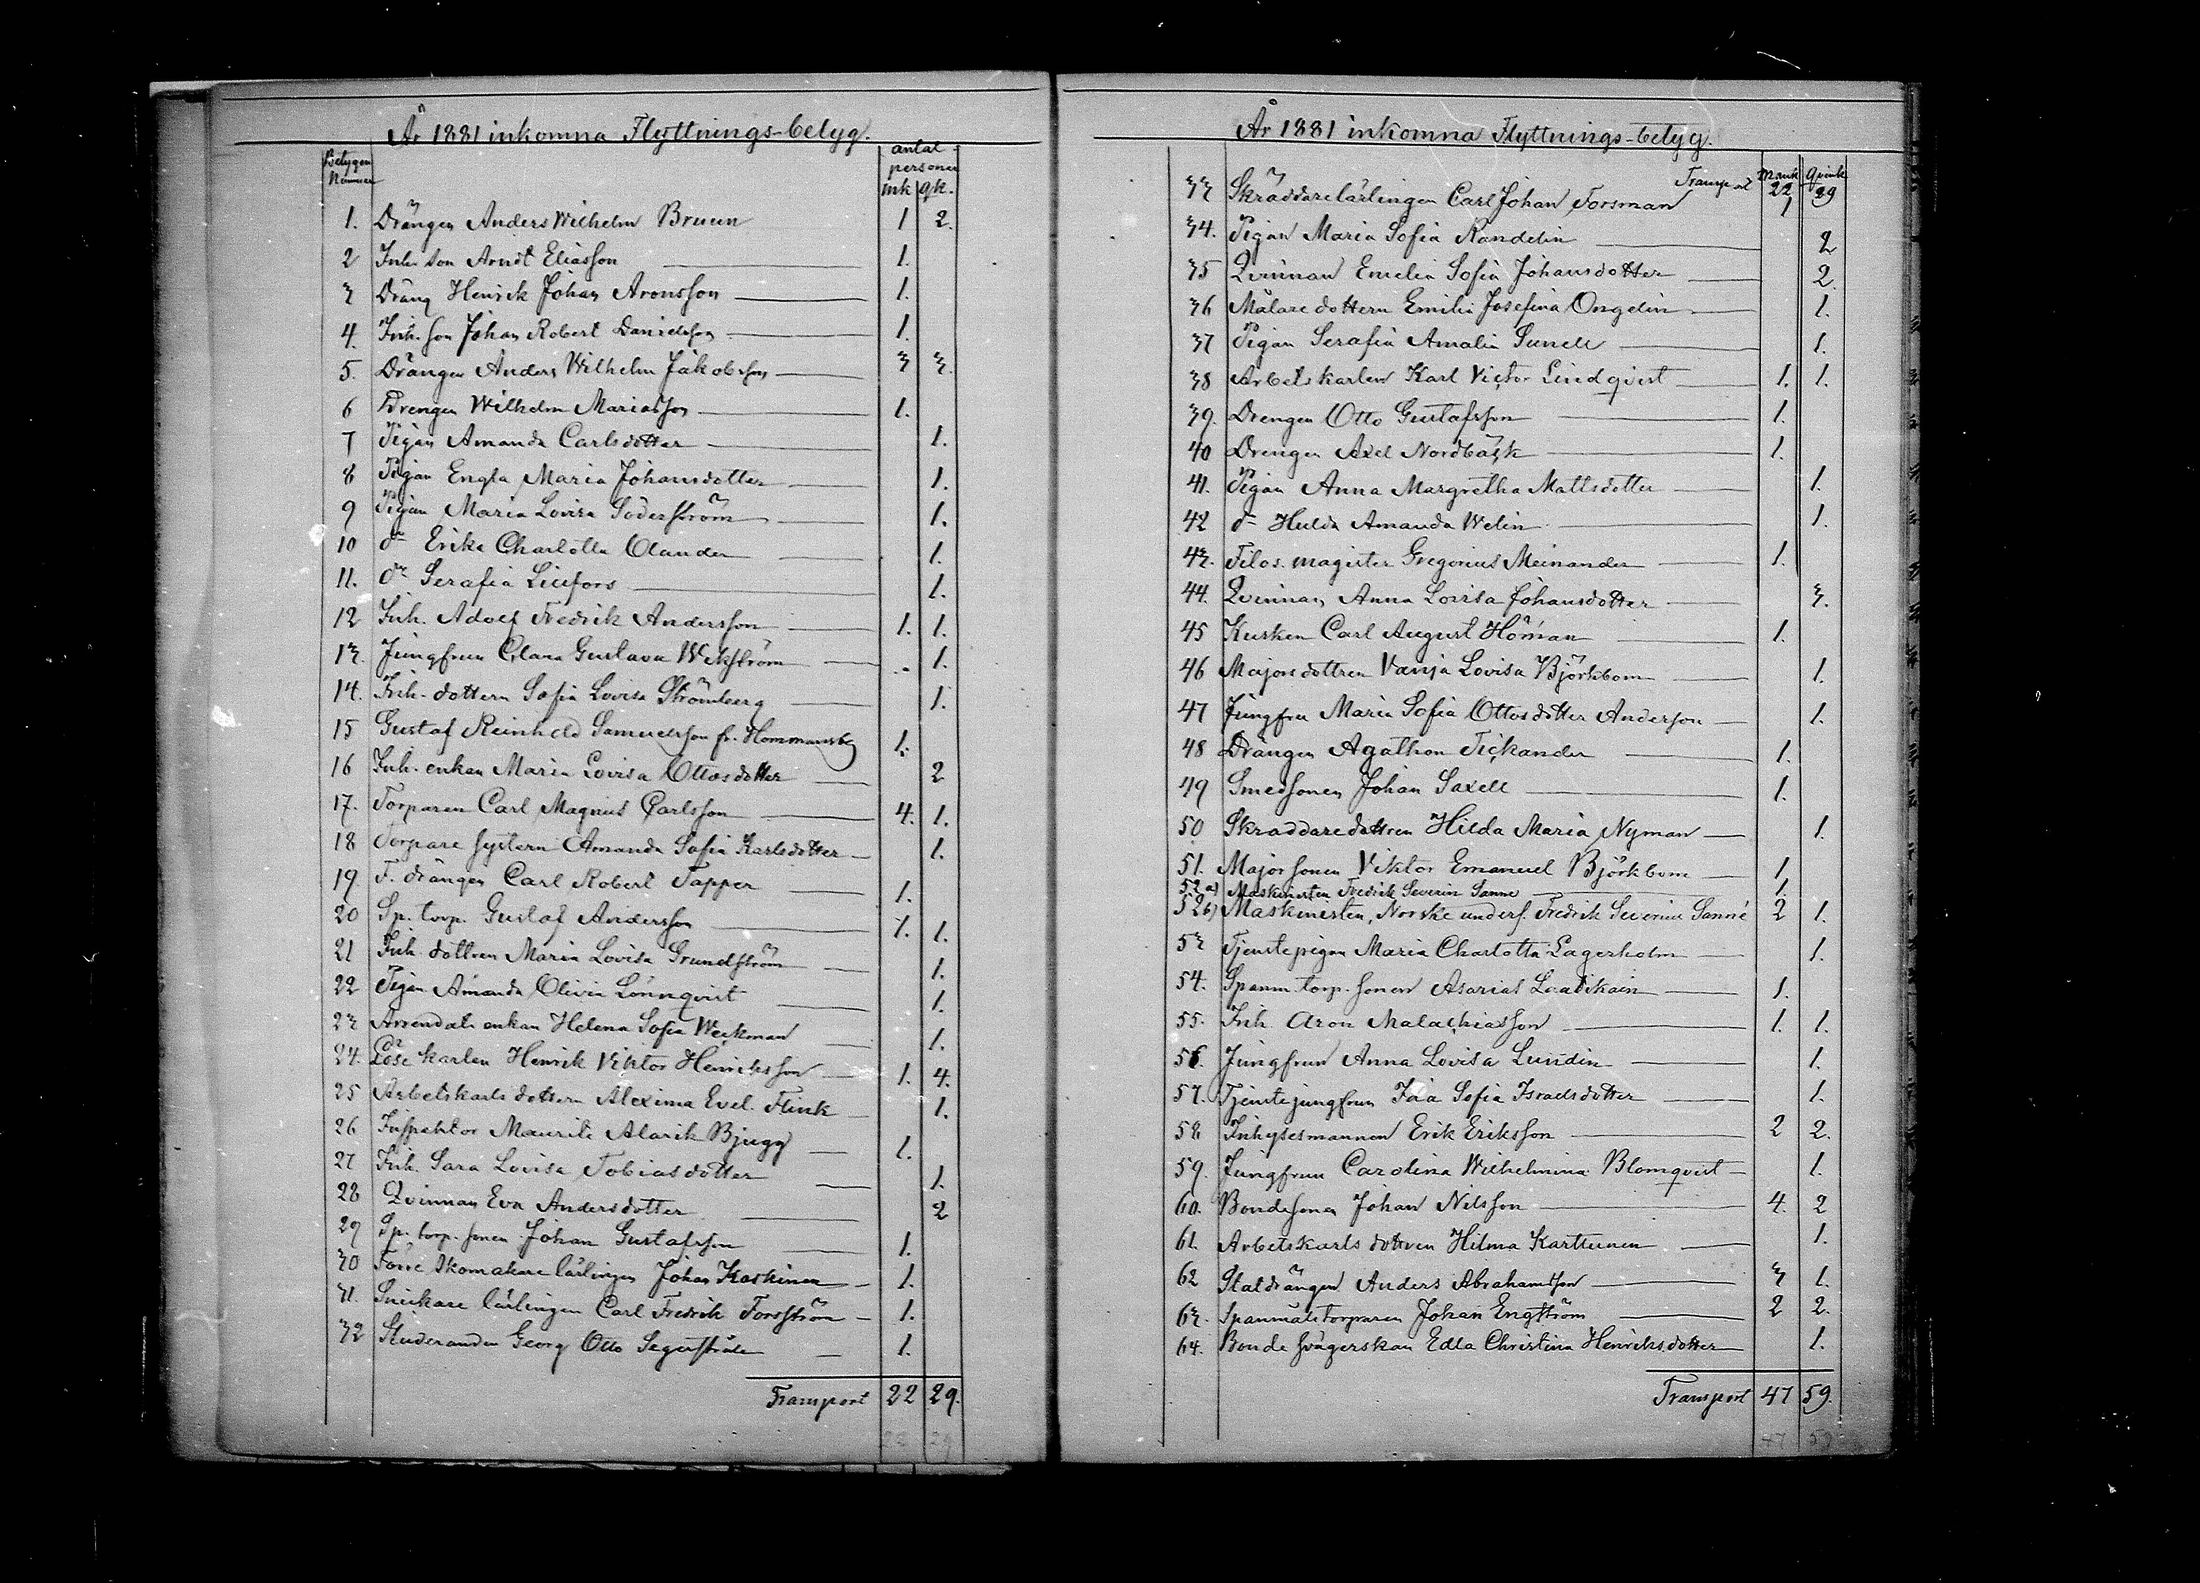 År 1881 inkomna Flyttnings-betyg.
Betygen Nummer antal personer
mk qk.
1. Drängen Anders Wilhelm Bruun 1 2.
2 Inh. son Arndt Eliasson 1.
3 Dräng Henrik Johan Aronsson 1.
4. Inh. son Johan Robert Danielsson 1.
5. Drängen Anders Wilhelm Jakobsson 3 3.
6 Drengen Wilhelm Mariasson 1.
7 Pigan Amanda Carlsdotter 1.
8 Pigan Engla Maria Johansdotter 1.
9 Pigan Maria Lovisa Söderström 1.
10 do Erika Charlotta Olander 1.
11. do Serafia Liljefors 1.
12 Inh. Adolf Fredrik Andersson 1. 1.
13. Jungfrun Clara Gustava Wekström - 1.
14. Inh. dottern Sofia Lovisa Strömberg 1.
15 Gustaf Reinhold Samuelsson fr. Hommansby 1.
16 Inh. enkan Maria Lovisa Ottosdotter 2
17. Torparen Carl Magnus Carlsson 4. 1.
18 Torpare systern Amanda Sofia Karlsdotter 1.
19 F. drängen Carl Robert Tapper 1.
20 Sp. torp. Gustaf Andersson 1. 1.
21 Inh. dottren Maria Lovisa Grundström 1.
22 Pigan Amanda Olivia Lönnqvist 1.
23 Arrendat. enkan Helena Sofia Weckman 1.
24. Löse karlen Henrik Viktor Henriksson 1. 4.
25 Arbetskarls dottern Alexima Evel. Flink 1.
26 Inspektor Maurits Alarik Bjugg 1.
27 Inh. Sara Lovisa Tobiasdotter 1.
28 Qvinnan Eva Andersdotter 2
29 Sp. torp. sonen Johan Gustafsson 1.
30 Förre Skomakare lärlingen Johan Koskinen 1.
31. Snickare lärlingen Carl Fredrik Forsström 1.
32 Studeranden Georg Otto Segerstråle 1.
Transport 22 29.
22 29
År 1881 inkomna Flyttnings-betyg.
Mank Qvink
Transport 22 29
33 Skräddarelärlingen Carl Johan Forsman 1
34. Pigan Maria Sofia Randelin 2
35 Qvinnan Emelia Sofia Johansdotter 2.
36 Målare dottern Emilia Josefina Ongelin 1.
37 Pigan Serafia Amalia Sunell 1.
38 Arbetskarlen Karl Victor Lindqvist 1. 1.
39. Drengen Otto Gustafsson 1.
40 Drengen Axel Nordbäck 1.
41. Pigan Anna Margretha Mattsdotter 1.
42 do Hulda Amanda Welin 1.
43. Filos. magister Gregorius Meinander 1.
44. Qvinnan Anna Lovisa Johansdotter 3.
45 Kusken Carl August Höman 1.
46 Majorsdottren Vanja Lovisa Björkbom 1.
47 Jungfru Maria Sofia Ottosdotter Anderson 1.
48 Drängen Agathon Tickander 1.
49 Smedsonen Johan Saxell 1.
50 Skraddaredottren Hilda Maria Nyman 1.
51. Majorsonen Viktor Emanuel Björkbom 1.
52 a) Maskinisten Fredrik Severin Sanne 1.
52 b) Maskinisten, Norske unders. Fredrik Severin Sanné 2 1.
53 Tjenstepigan Maria Charlotta Lagerholm 1.
54. Spanm. torp. sonen Asarias Laatikain 1.
55. Inh. Aron Malachiasson 1. 1.
56. Jungfrun Anna Lovisa Lundin 1.
57. Tjenstejungfrun Ida Sofia Israelsdotter 1.
58 Inhysesmannen Erik Eriksson 2 2.
59. Jungfrun Carolina Wilhelmina Blomqvist 1.
60. Bondesonen Johan Nilsson 4. 2
61. Arbetskarls dottren Hilma Karttunen 1.
62 Statdrängen Anders Abrahamsson 3 1.
63. Spanmålstorparen Johan Engström 2 2.
64. Bonde Svägerskan Edla Christina Henriksdotter 1.
Transport 47 59.
47 59